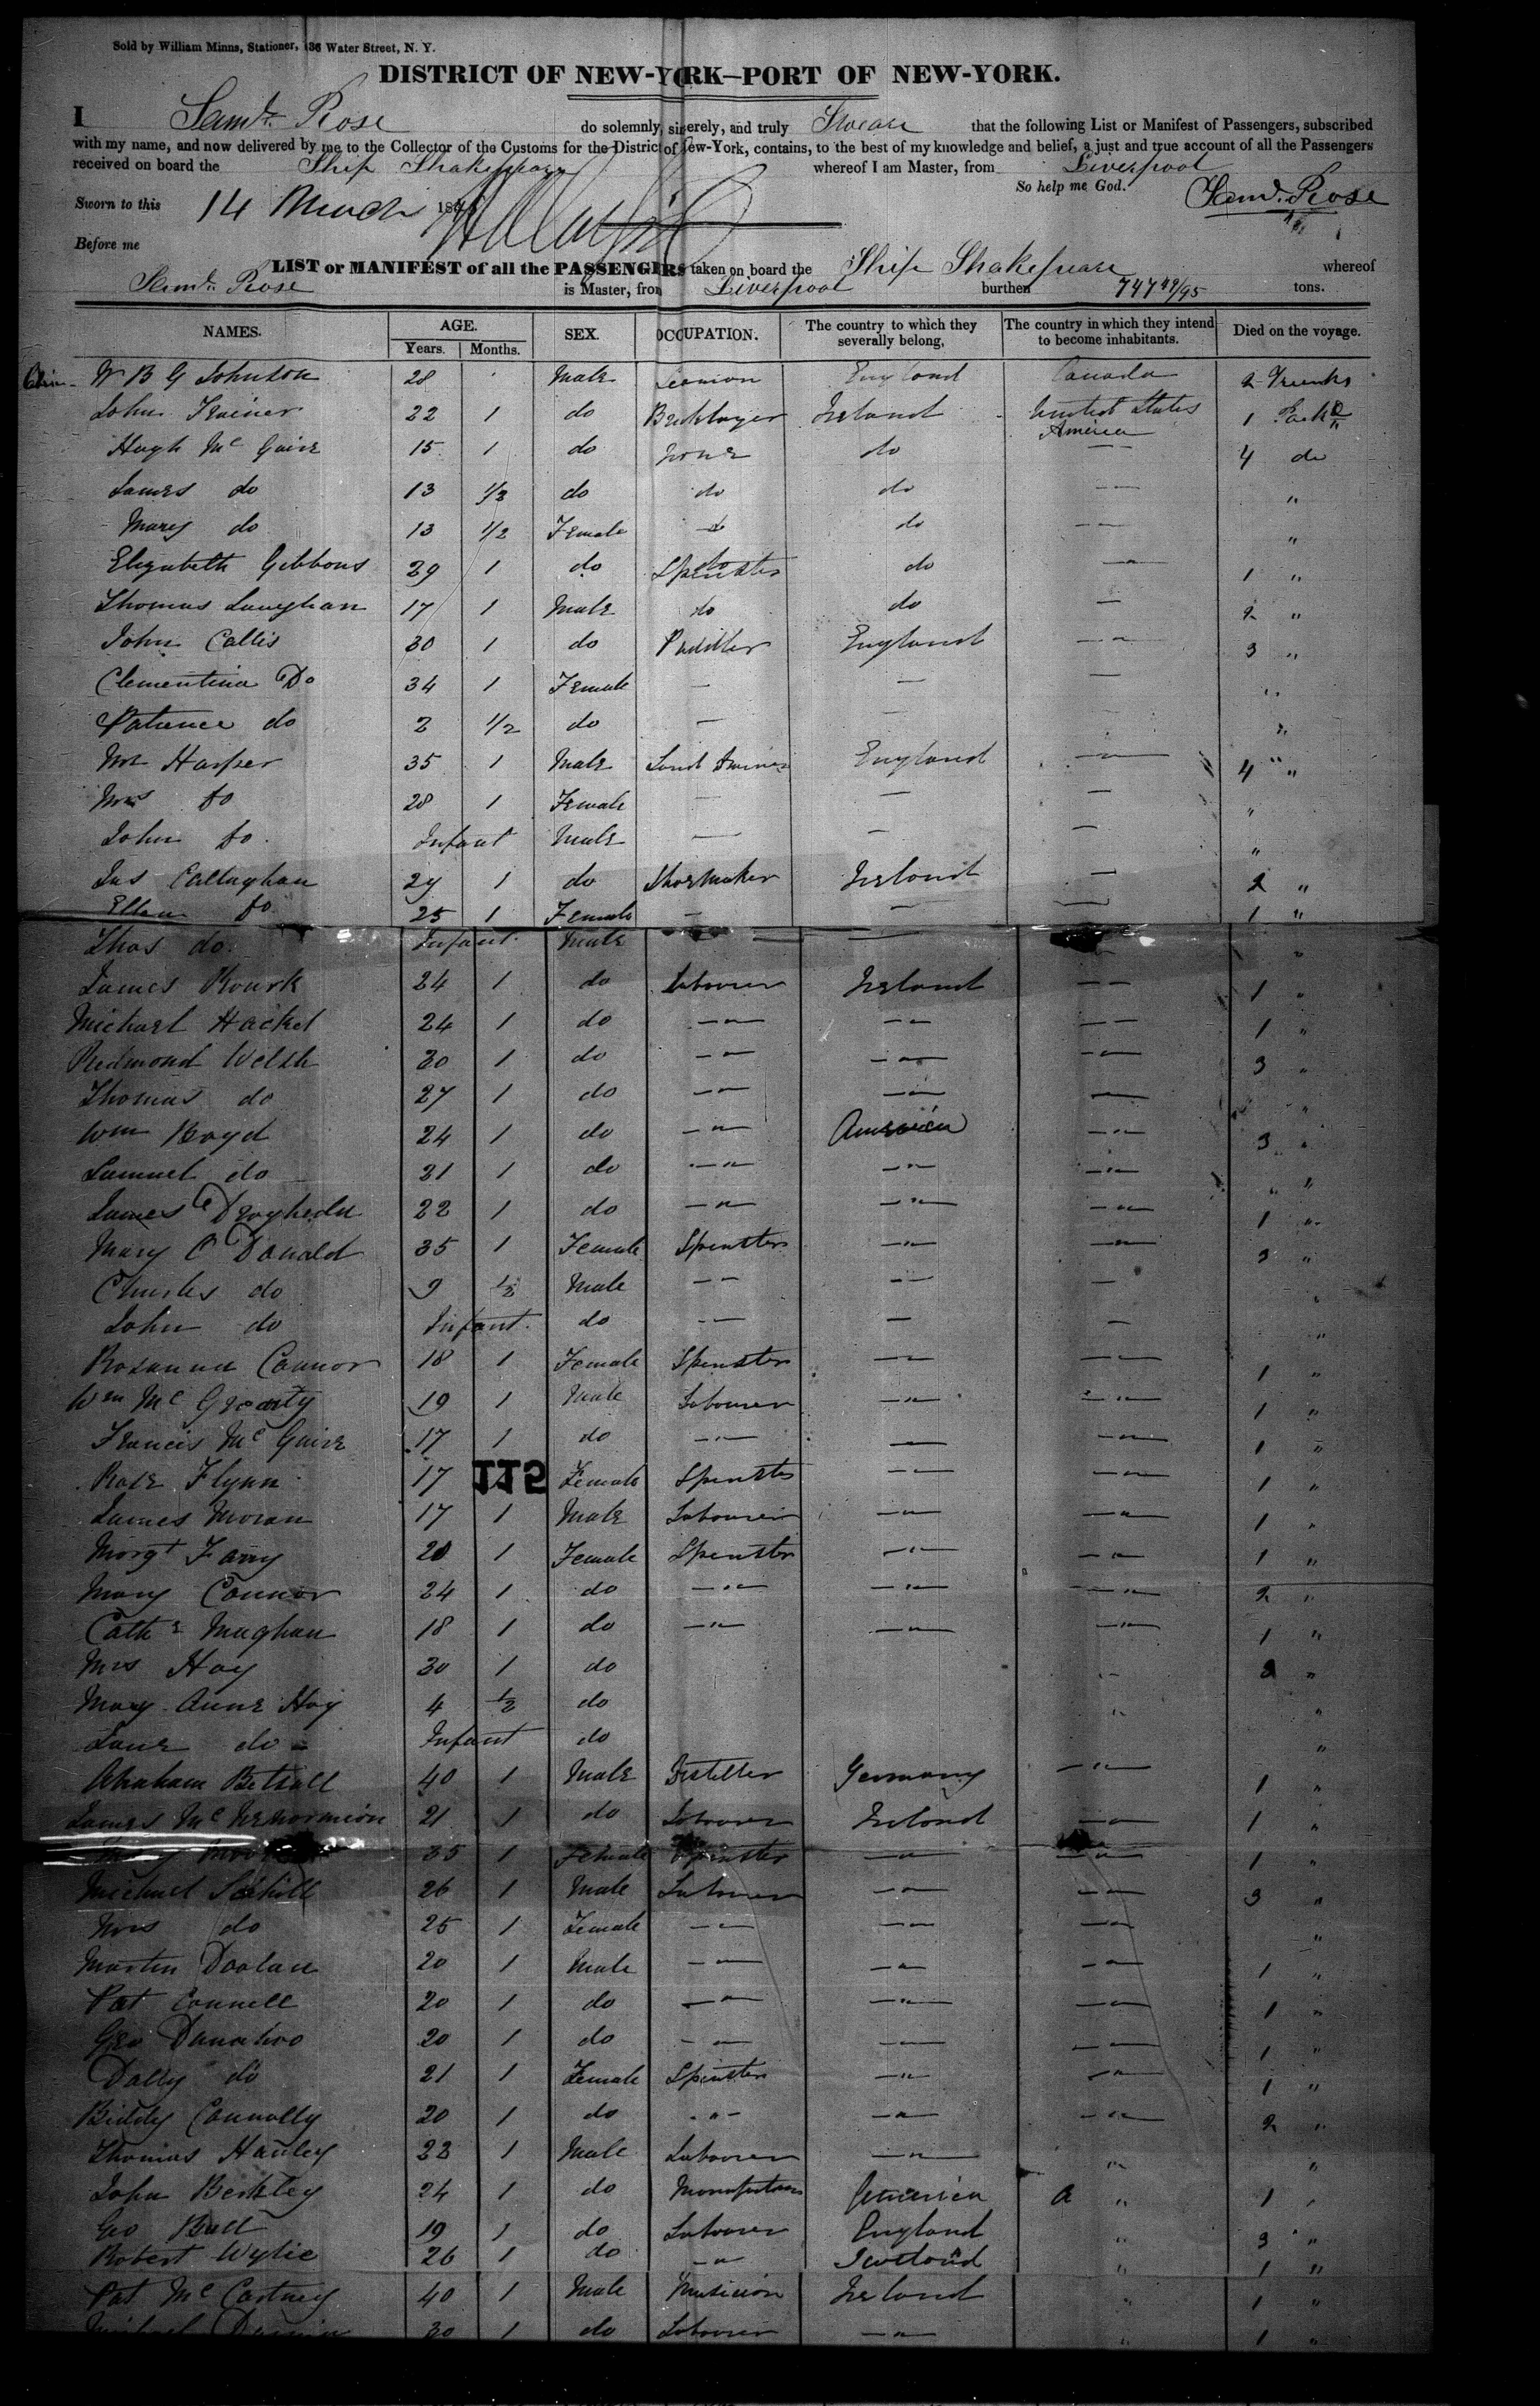 Sold by William Minns, Stationer, 136 Water Street, N. Y.
DISTRICT OF NEW-YORK—PORT OF NEW-YORK.
I Saml. Rose do solemnly, sincerely, and truly Swear that the following List or Manifest of Passengers, subscribed
with my name, and now delivered by me to the Collector of the Customs for the District of New-York, contains, to the best of my knowledge and belief, a just and true account of all the Passengers
received on board the Ship Shakespeare whereof I am Master, from Liverpool
So help me God. Saml. Rose
Sworn to this 14 March 184
Before me
LIST or MANIFEST of all the PASSENGERS taken on board the Ship Shakespeare whereof
Saml. Rose is Master, from Liverpool burthen 747 49/95 tons.
NAMES. AGE. SEX. OCCUPATION. The country to which they severally belong. The country in which they intend to become inhabitants. Died on the voyage.
Years. Months.
W B G Johnson 28 Male England Canada 2 Trunks
John Trainer 22 1 do Bricklayer Ireland United States America 1
Hugh Mc Guire 15 1 do None do — 4 do
James do 13 1/2 do do do — — "
Mary do 13 1/2 Female do do — — "
Elizabeth Gibbons 29 1 do Spinster do — " — 1 "
Thomas Laughan 17 1 Male do do — 2 "
John Callis 30 1 do Puddler England — " — 3 "
Clementina Do 34 1 Female — — — "
Patience do 2 1/2 do — — "
Mr Harper 35 1 Male England — " — 4 "
Mrs do 28 1 Female — — — "
John do Infant Male — — — "
Jas Callaghan 29 1 do Shoemaker Ireland — 2 "
Ellen do 25 1 Female — — — 1 "
Thos do Infant Male — — "
James Rourk 24 1 do Labourer Ireland — — 1 "
Michael Hacket 24 1 do — " — — — — — 1 "
Redmond Welsh 30 1 do — " — — " — — " — 3 "
Thomas do 27 1 do — " — — " — — "
Wm Boyd 24 1 do — " — America — " — 3 "
Samuel do 21 1 do — " — — " — — " — "
James Drogheda 22 1 do — " — — " — — " — 1 "
Mary C Donald 35 1 Female Spinster — " — — " — 3 "
Charles do 9 1/2 Male — — — " — — "
John do Infant do — — — — "
Rosanna Connor 18 1 Female Spinster — " — — " — 1 "
Wm Mc Gready 19 1 Male Labourer — " — — " — 1 "
Francis Mc Guire 17 1 do — " — — — " — 1 "
Rose Flynn 17 Female Spinster — " — — " — 1 "
James Moran 17 1 Male Labourer — " — — " — 1 "
Margt Farry 20 1 Female Spinster — " — — " — 1 "
Mary Connor 24 1 do — " — — " — — " — 2 "
Cathe Maughan 18 1 do — " — — " — — " — 1 "
Mrs Hoy 30 1 do 2 "
Mary Anne Hoy 4 1/2 do " "
Jane do Infant do "
Abraham 40 1 Male Distiller Germany — " — 1 "
James Mc 21 1 do Labourer Ireland — " — 1 "
35 1 Female Spinster — " — — " — 1 "
Michael 26 1 Male Labourer — " — — " — 3 "
Mrs do 25 1 Female — " — — " — — " — "
Martin Doolan 20 1 Male — " — — " — — " — 1 "
Pat Connell 20 1 do — " — — " — — " — 1 "
Geo Donahoo 20 1 do — — — " — — " — 1 "
Dolly do 21 1 Female Spinster — " — — " — 1 "
Biddy Connolly 20 1 do — " — — " — — " — 2 "
Thomas Hanley 22 1 Male Labourer — " — " "
John Berkley 24 1 do America " 1 "
Geo Bull 19 1 do Labourer England " 3 "
Robert Wylie 26 1 do — " — Scotland " 1 "
Pat Mc Cartney 40 1 Male Musician Ireland " 1 "
Michael 30 1 do Labourer — " — " 1 "